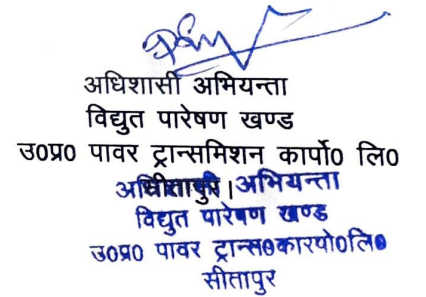 अधिशासी अभियन्ता
विद्युत पारेषण खण्ड
उ0प्र0 पावर ट्रान्समिशन कार्पो0 लि0
सीतापुर।
अधिशासी अभियन्ता
विद्युत पारेषण खण्ड
उ0प्र0 पावर ट्रान्स0कारपो0लि0
सीतापुर